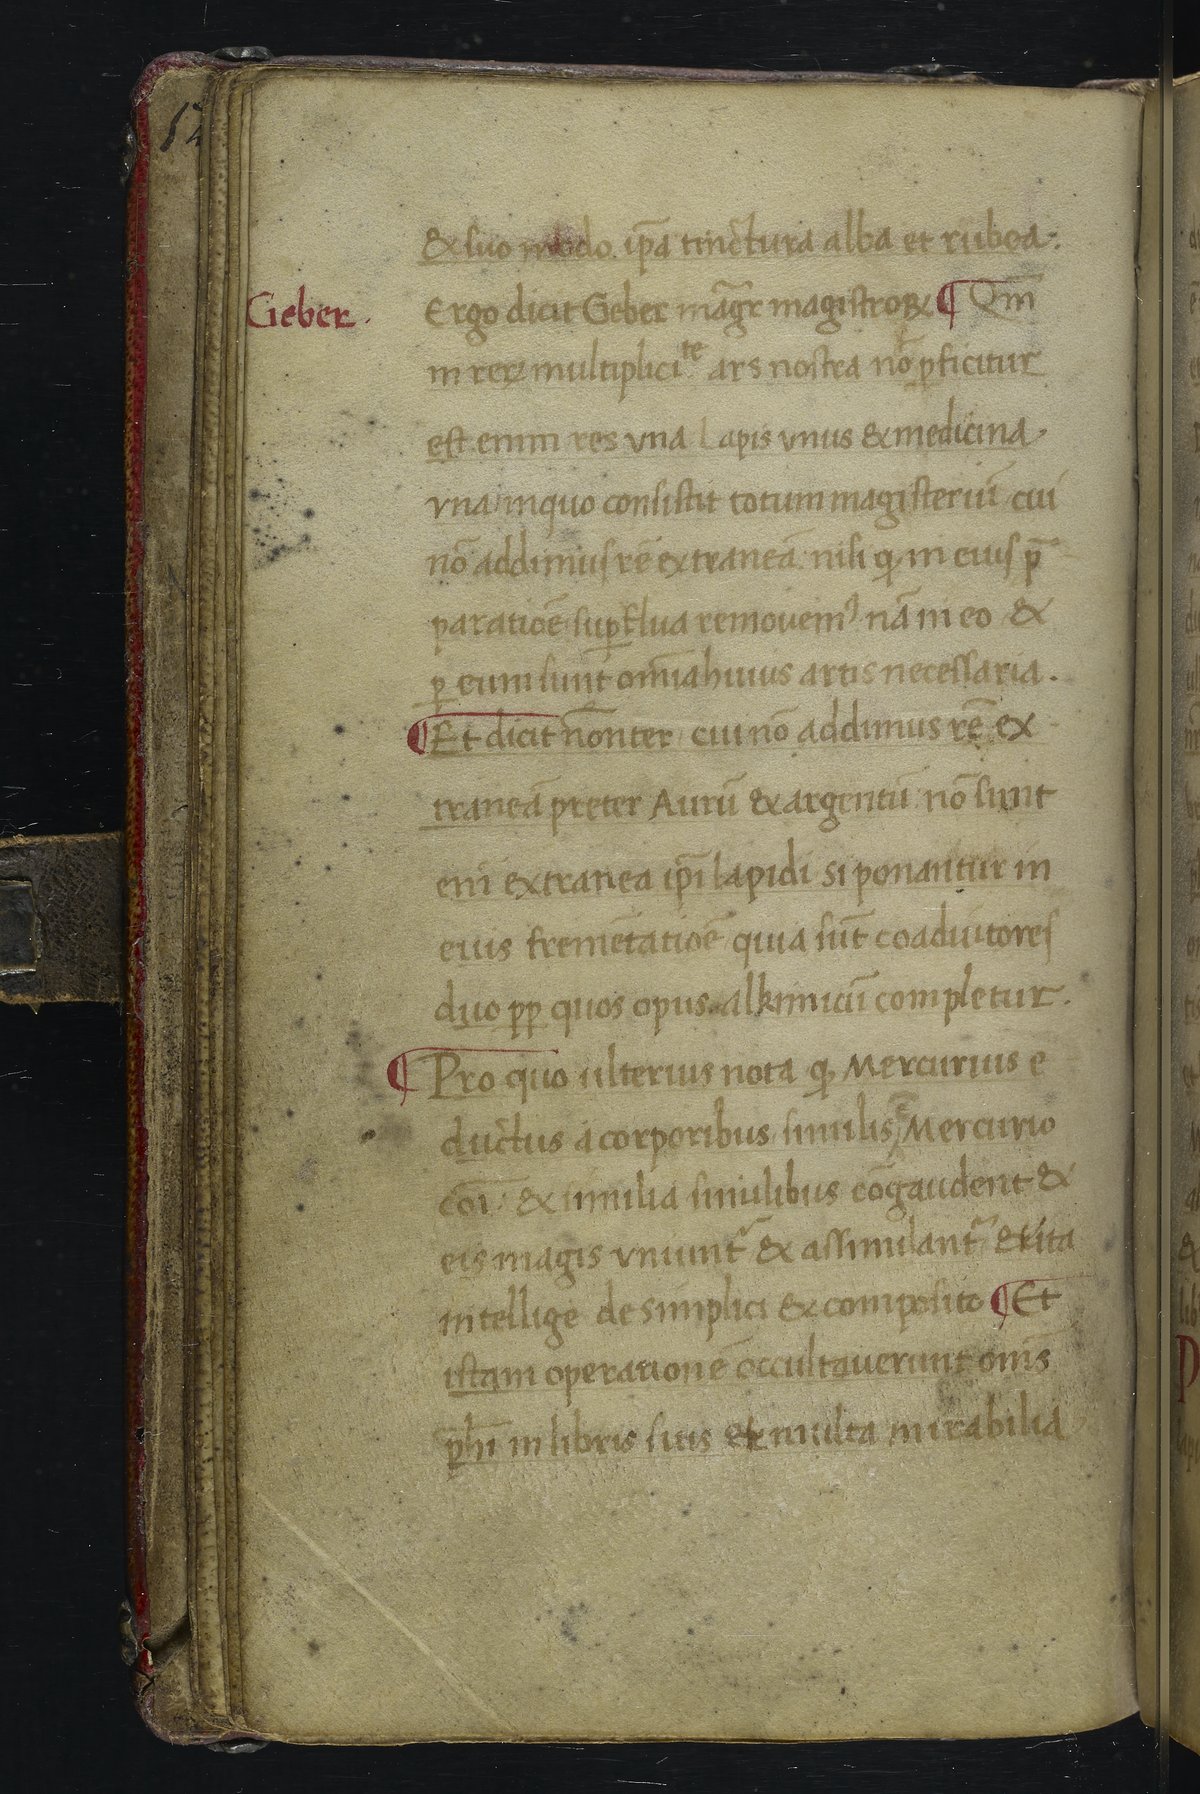 52
& suo modo. ip̄a tinctura alba et rubea.
Geber.
Ergo dicit Geber māgr̄ magistroꝝ ¶ Qm̄
in reꝝ multipliciᵗᵉ ars nostra nō ꝑficitur
est enim res vna Lapis vnus & medicina
vna inquo consistit totum magisteriū cui
nō addimus rē extraneā nisi ꝙ in eius p̄
paratiōe suꝑflua removemꝰ nā in eo &
ꝑ eum sunt om̄ia huius artis necessaria.
¶ Et dicit nōnter cui nō addimus rē ex
traneā preter Aurū & argentū nō sunt
eni extranea ip̄i lapidi si ponantur in
euis fremētatiōe quia sūt coadiutores
duo ꝑꝑ quos opus alkimicū completur.
¶ Pro quo ulterius nota ꝙ Mercurius e
ductus a corporibus similis ē Mercurio
cōi & similia similibus cōgaudent &
eis magis vniunt᷑ & assimilant᷑ Et ita
intellige de simplici & composito ¶ Et
istam operationē occultaverunt om̄s
ph̄i in libris suis et multa mirabilia